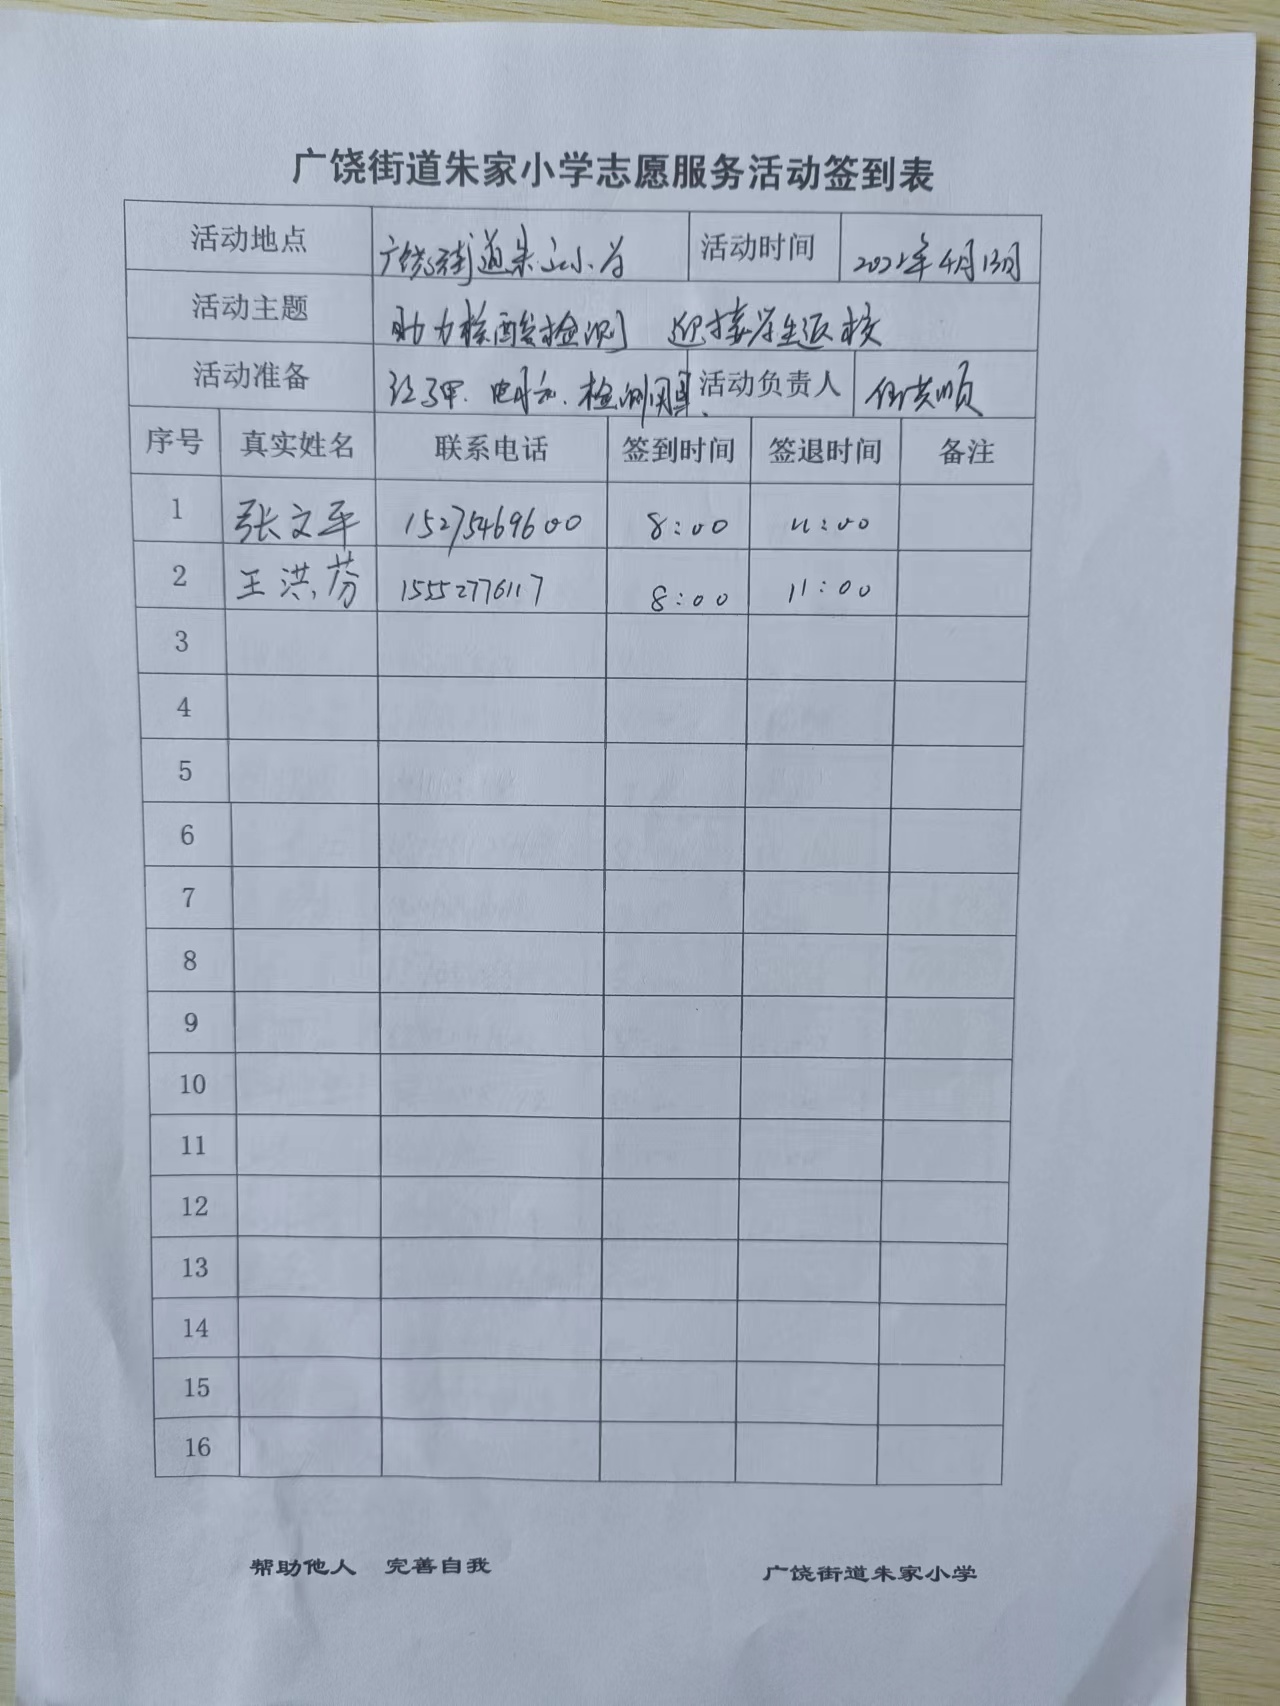 广饶街道朱家小学志愿服务活动签到表
活动地点 广饶街道朱家小学 活动时间 2022年4月13日
活动主题 助力核酸检测 迎接学生返校
活动准备 红马甲、电脑、检测用具 活动负责人
序号 真实姓名 联系电话 签到时间 签退时间 备注
1 张文平 15275469600 8:00 11:00
2 王洪芬 15552776117 8:00 11:00
3
4
5
6
7
8
9
10
11
12
13
14
15
16
帮助他人 完善自我 广饶街道朱家小学